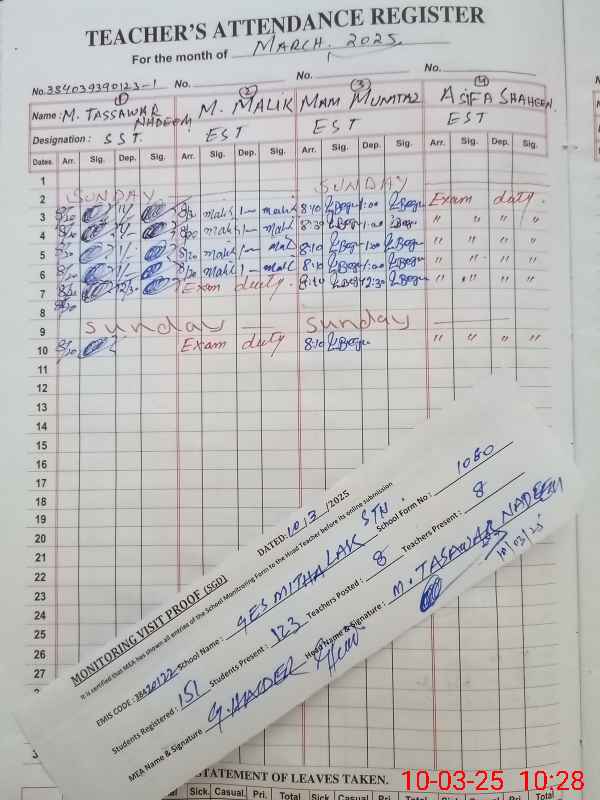 TEACHER'S ATTENDANCE REGISTER
For the month of MARCH. 2025.
No. 384039390123-1 No. No. No.
① ② ③ ④
Name: M. TASSAWAR NADEEM M. MALIK MAM MUMTAZ ASIFA SHAHEEN.
Designation: SST. EST EST EST
Dates. Arr. Sig. Dep. Sig. Arr. Sig. Dep. Sig. Arr. Sig. Dep. Sig. Arr. Sig. Dep. Sig.
1
2 SUNDAY SUNDAY
3 1/- malik 1— malik 8:10 1:00 Exam duty.
4 1/- malik 1— malik 8:30 1:00 " " " "
5 1/- malik 1— 8:10 1:00 " " " "
6 1/- malik 1— 8:10 1:00 " " " "
7 12/30 Exam duty. 8:10 12:30 " " " "
8
9 Sunday Sunday
10 Exam duty 8:10 " " " "
11
12
13
14
15
16
17
18
19
20
21
22
23
24
25
26
27
MONITORING VISIT PROOF (SGD) DATED: 10/3/2025
It is certified that MEA has shown all entries of the School Monitoring Form to the Head Teacher before its online submission
EMIS CODE: School Name: GES MITHALAK STN. School Form No: 1060
Students Registered: 151 Students Present: 123 Teachers Posted: 8 Teachers Present: 8
MEA Name & Signature: G. HAIDER Head Name & Signature: M. TASAWAR NADEEM
10/03/25
STATEMENT OF LEAVES TAKEN.
Sick. Casual. Pri. Total Sick. Casual. Pri. Total Sick. Casual. Pri. Total
10-03-25 10:28